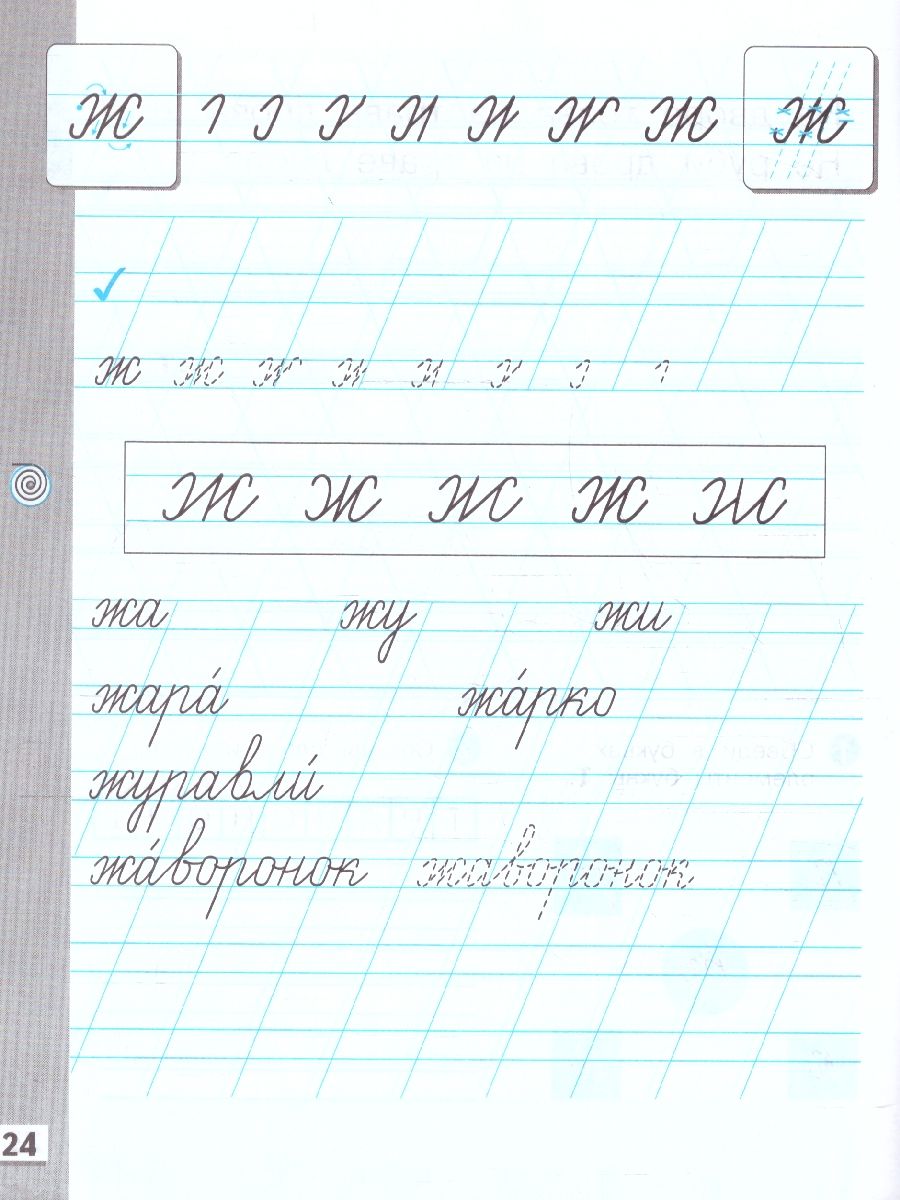 ж ж ж
ж ж
ж ж ж ж ж
жа жу жи
жара́ жа́рко
журавли́
жа́воронок жаворонок
24